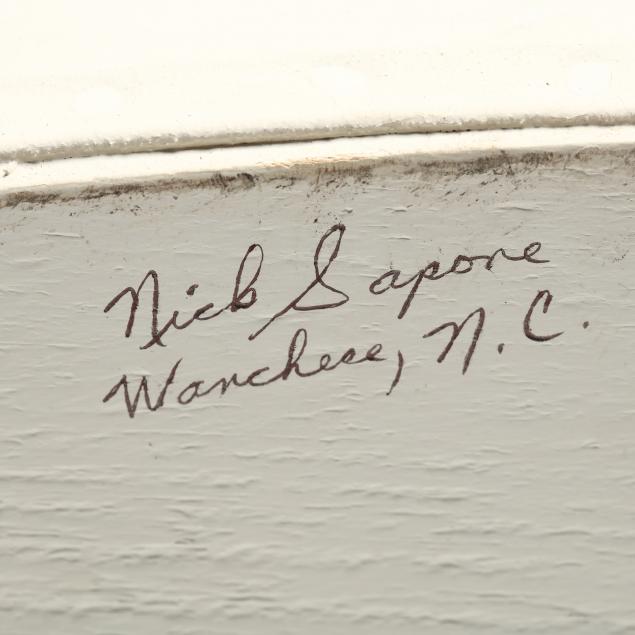 Nick Sapone
Wanchese, N.C.